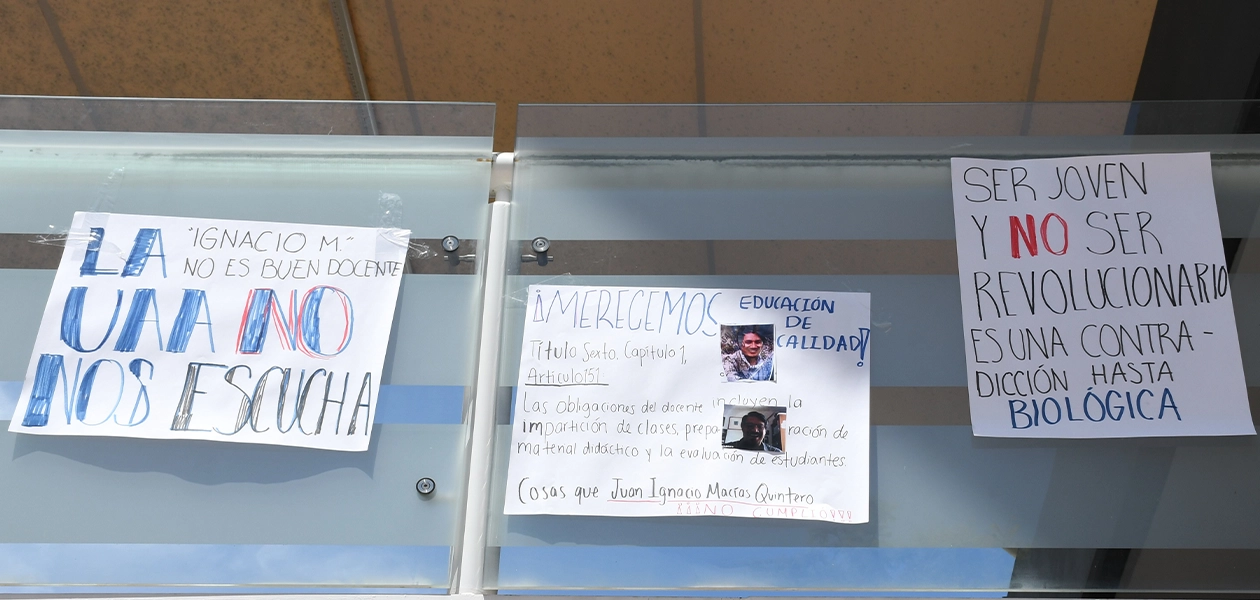 LA "IGNACIO M."
NO ES BUEN DOCENTE
UAA NO
NOS ESCUCHA
¡MERECEMOS EDUCACIÓN
DE
CALIDAD!
Título Sexto, Capítulo 1,
Artículo 151
Las obligaciones del docente incluyen la
impartición de clases, preparación de
material didáctico y la evaluación de estudiantes.
Cosas que Juan Ignacio Macías Quintero
¡¡¡NO CUMPLIO!!!
SER JOVEN
Y NO SER
REVOLUCIONARIO
ES UNA CONTRA-
DICCIÓN HASTA
BIOLÓGICA